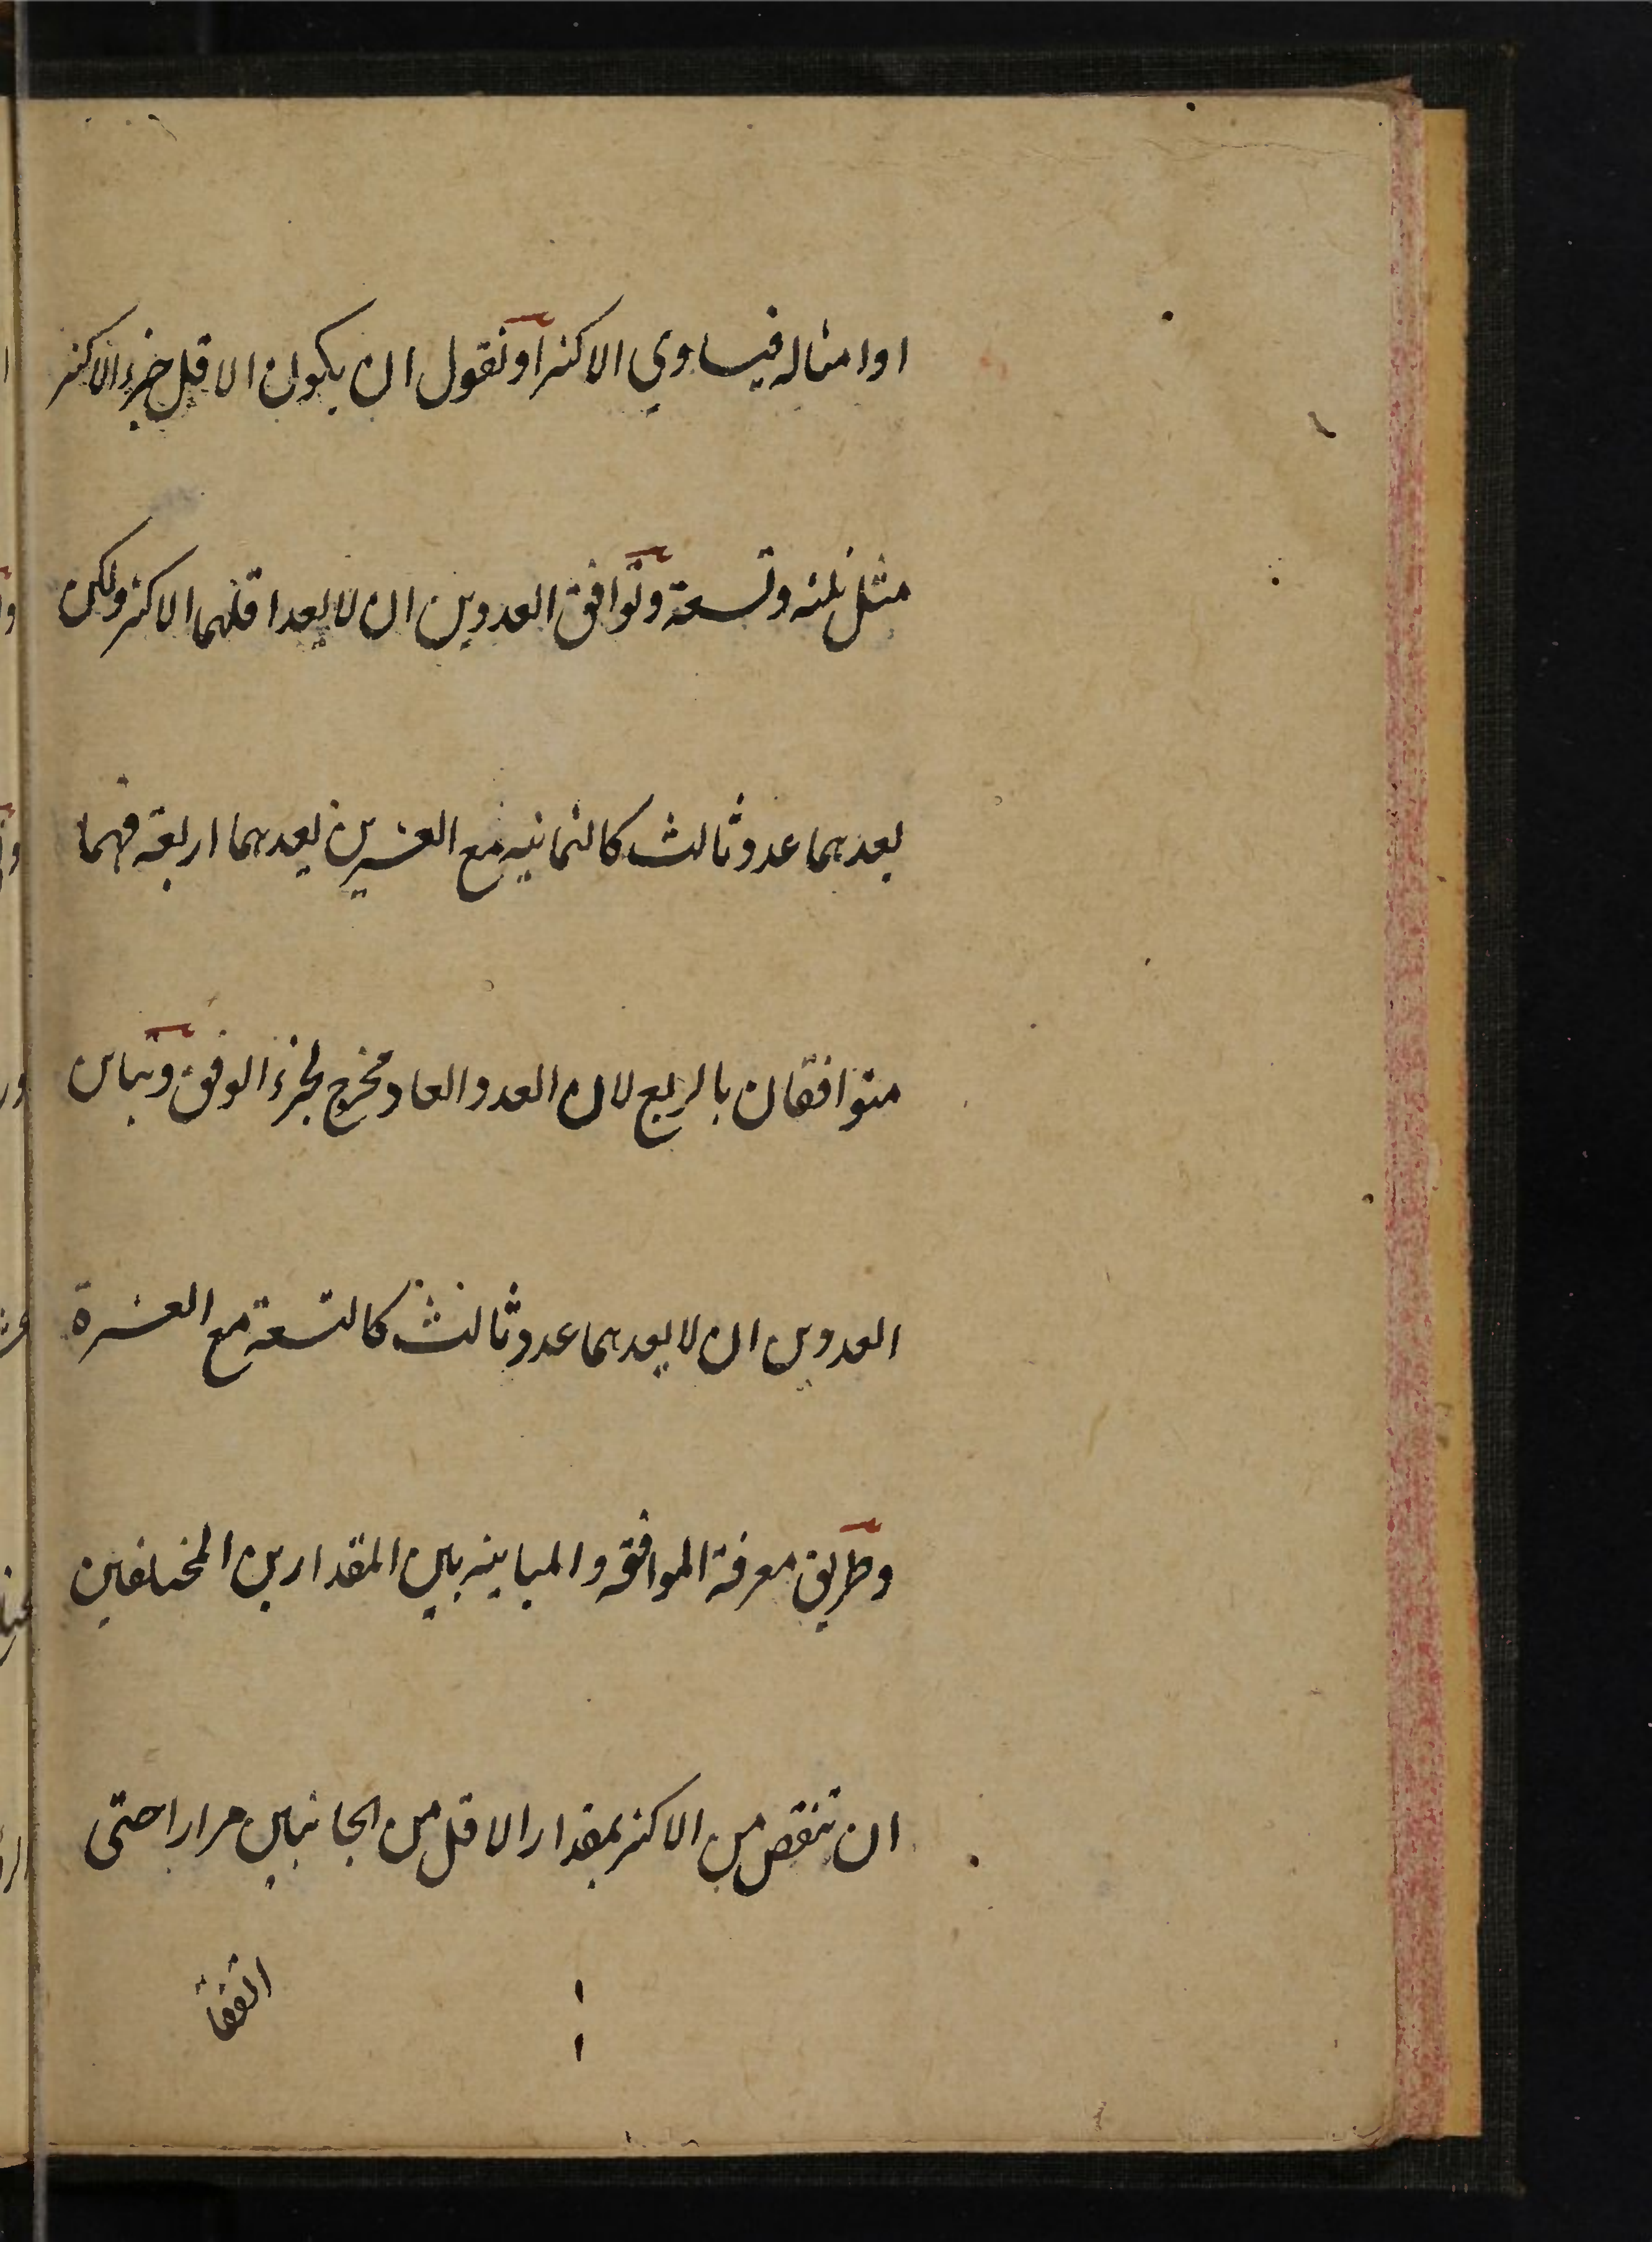 او امثاله فيساوي الاكثر او نقول ان يكون الاقل جزء الاكثر
مثل ثلثه وتسعة وتوافق العددين ان لا يعد اقلهما الاكثر ولكن
يعدهما عدد ثالث كالثمانيه مع العشرين يعدهما اربعة فهما
متوافقان بالربع لان العدد العاد مخرج لجزء الوفق وتباين
العددين ان لا يعدهما عدد ثالث كالتسعة مع العشرة
وطريق معرفة الموافقه والمباينه بين المقدارين المختلفين
ان تنقص من الاكثر بمقدار الاقل من الجانبين مرارا حتى
اتفقا